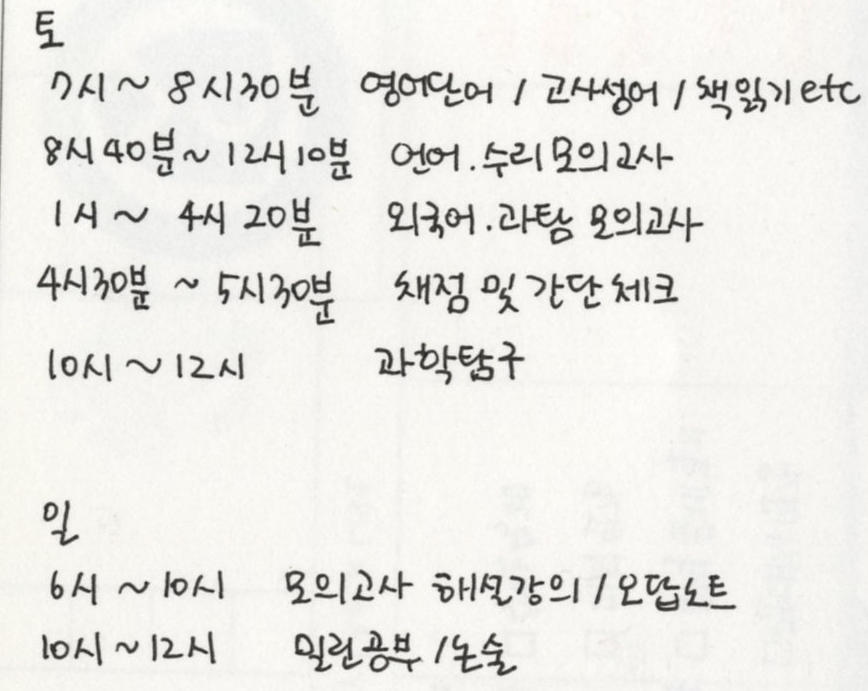 토
7시 ~ 8시30분 영어단어 / 고사성어 / 책읽기 etc
8시 40분 ~ 12시 10분 언어.수리 모의고사
1시 ~ 4시 20분 외국어.과탐 모의고사
4시30분 ~ 5시30분 채점 및 간단 체크
10시 ~ 12시 과학탐구
일
6시 ~ 10시 모의고사 해설강의 / 오답노트
10시 ~ 12시 밀린공부 / 논술